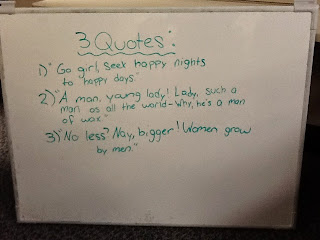 3 Quotes:
1) "Go girl, seek happy nights
to happy days"
2) "A man, young lady! Lady, such a
man as all the world-Why, he's a man
of wax."
3) "No less? Nay, bigger! Women grow
by men."